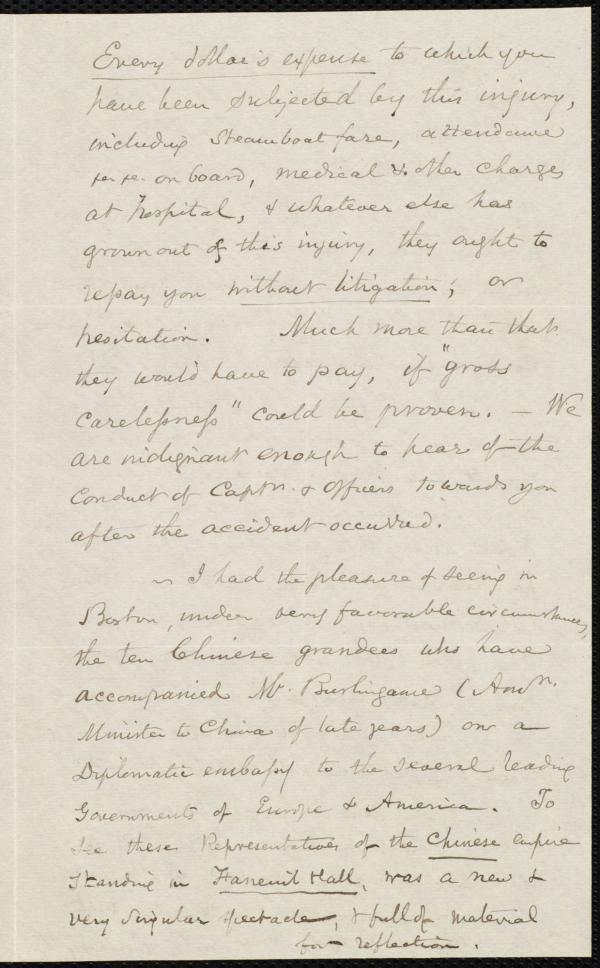 Every dollar's expense to which you
have been subjected by this injury,
including steamboat fare, attendance
&c. &c. on board, medical & other charges
at hospital, & whatever else has
grown out of this injury, they ought to
repay you without litigation; or
hesitation. Much more than that
they would have to pay, if "gross
carelessness" could be proven. — We
are indignant enough to hear of the
conduct of Captn. & officers towards you
after the accident occurred.
~ I had the pleasure of seeing in
Boston, under very favorable circumstances,
the ten Chinese grandees who have
accompanied Mr. Burlingame (Amn.
Minister to China of late years) on a
Diplomatic embassy to the several leading
Governments of Europe & America. To
see these Representatives of the Chinese empire
standing in Faneuil Hall, was a new &
very singular spectacle, & full of material
for reflection.